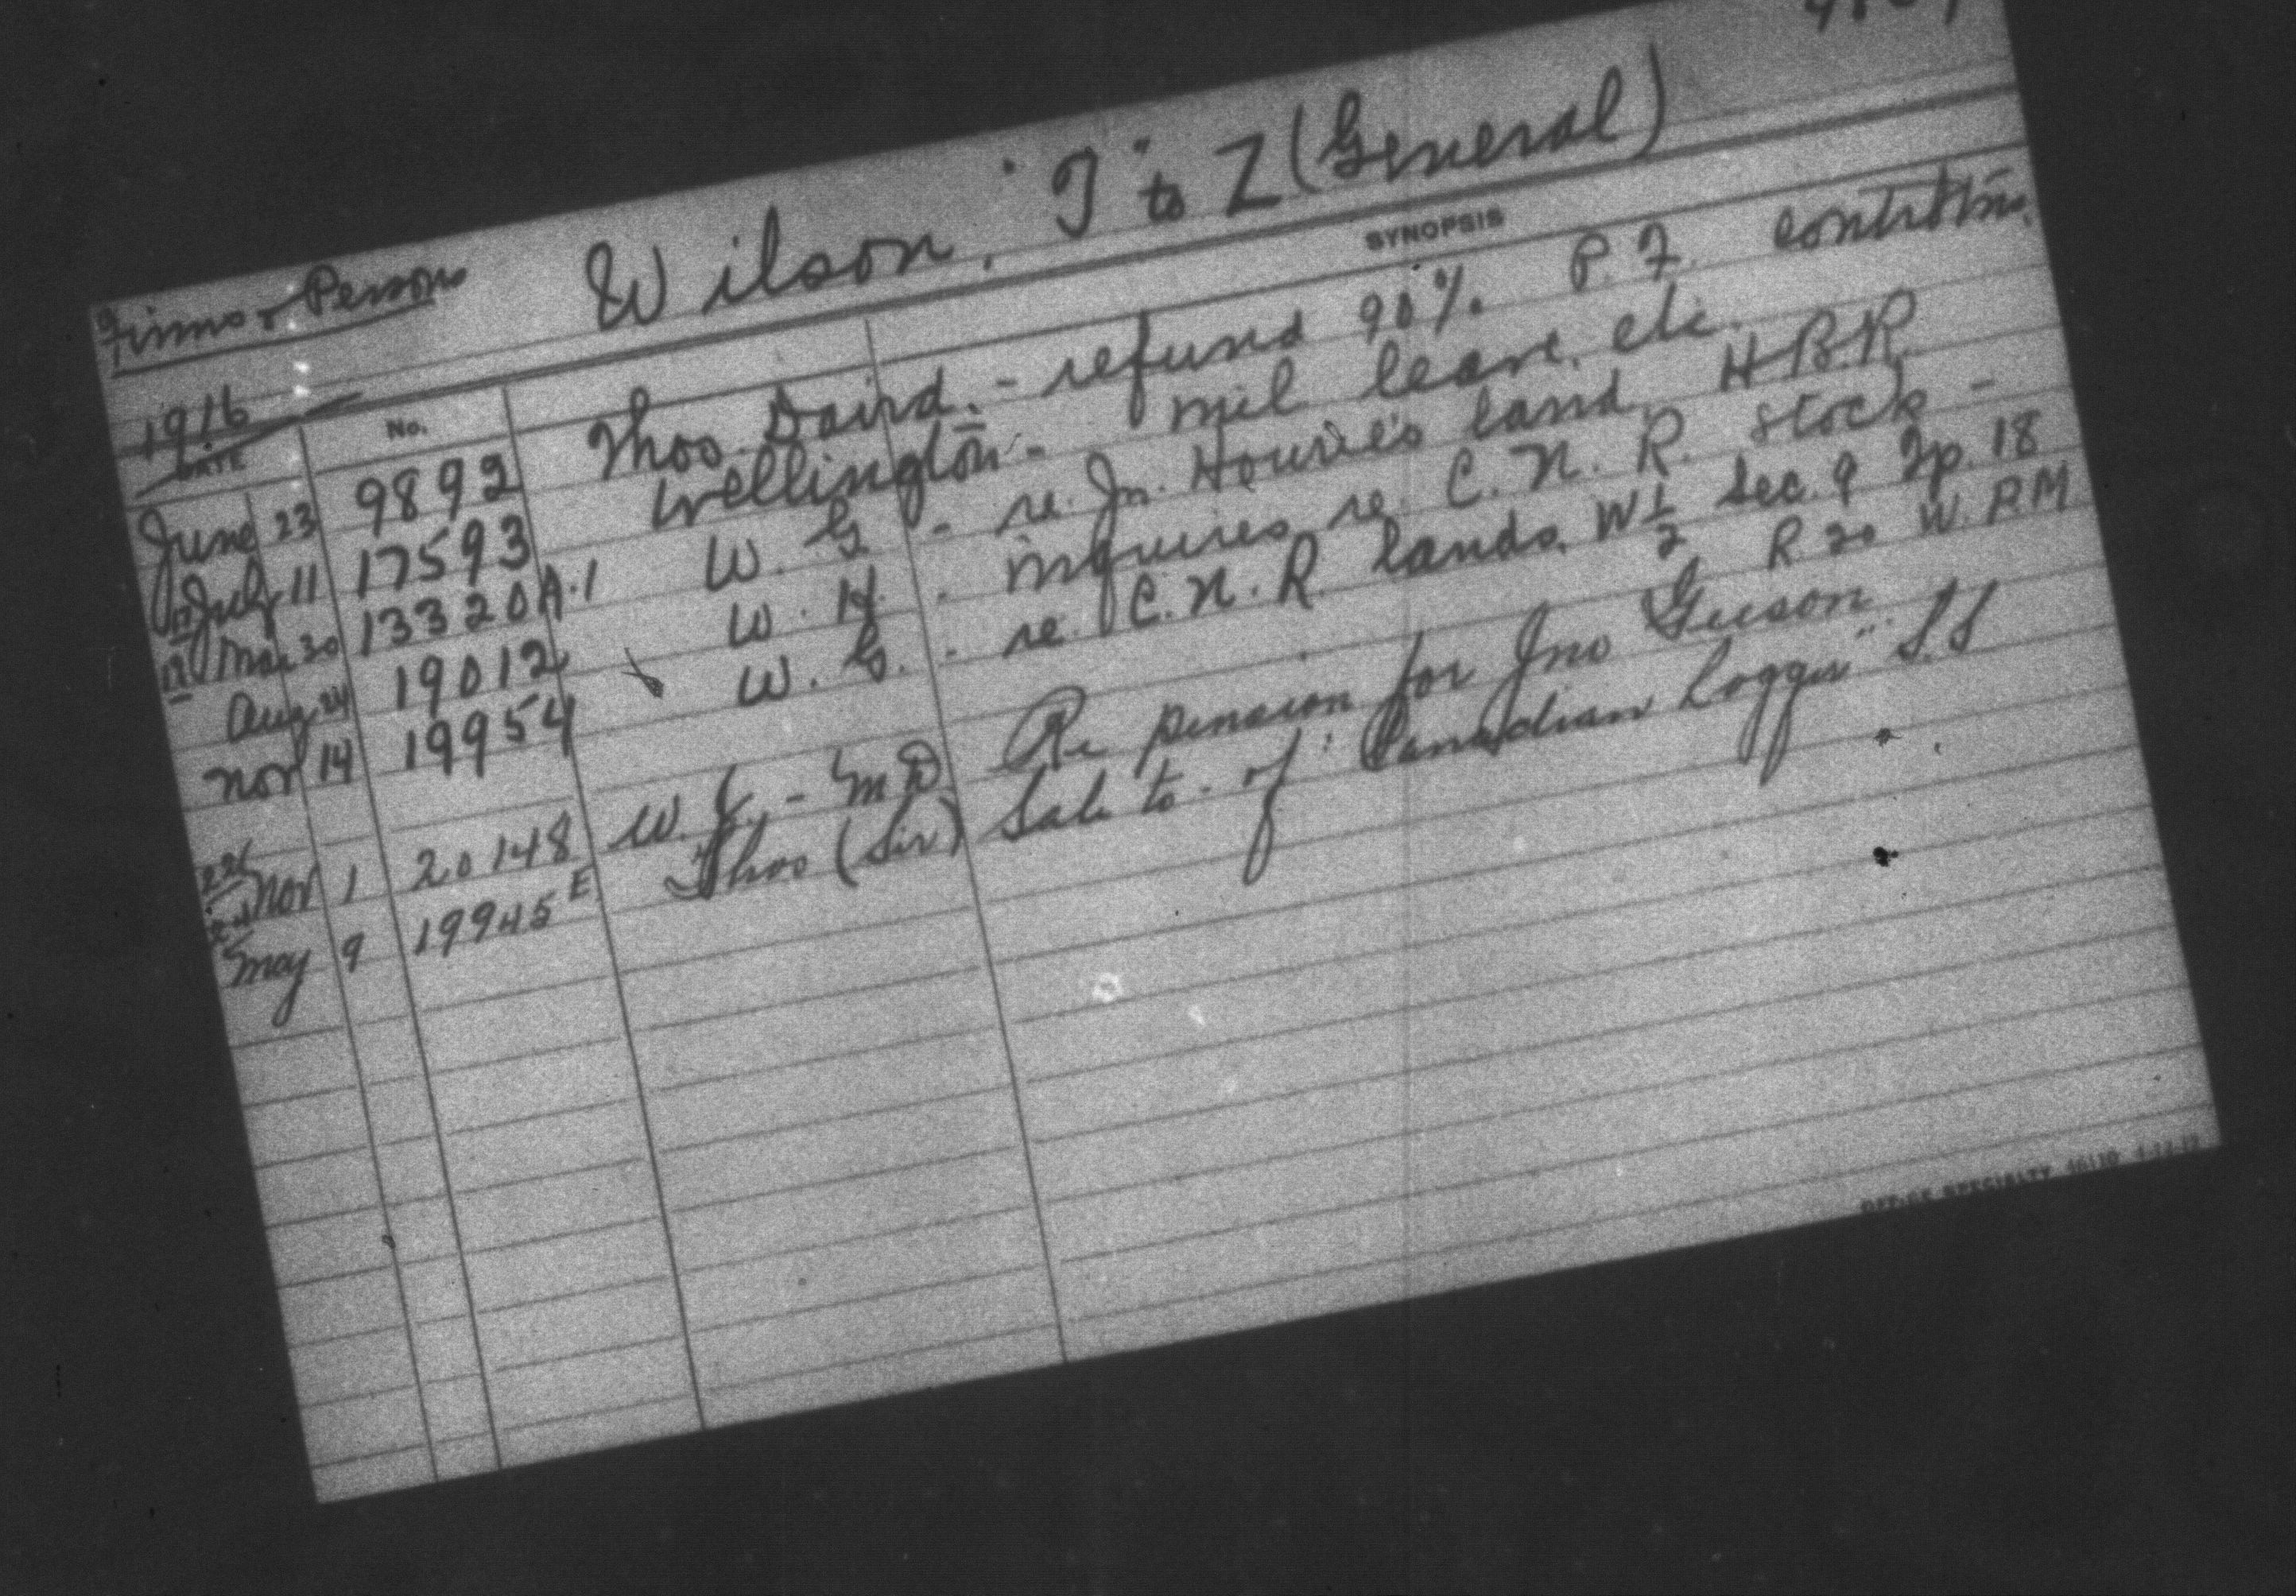 Firms & Persons Wilson, "T" to Z (General)
1916
DATE No. SYNOPSIS
June 23 9892 Thos. Baird. - refund 90% P.F. contrbtns.
17 July 11 17593 Wellington - mil leave. etc.
19 Mar 30 13320A.1 W. G. - re. Jn. Hourie's land. H.B.R.
Aug 24 19012 W. H. - inquires re. C.N.R. stock -
Nov 14 19954 W. G. - re. C.N.R lands. W½ Sec. 9 Tp. 18
R 20 W.P.M
Nov 1 20148 W. - M.D. Re pension for Jno
May 9 19945E Thos (Sir) Sale to - of "Canadian Logger" S.S
OFFICE SPECIALTY